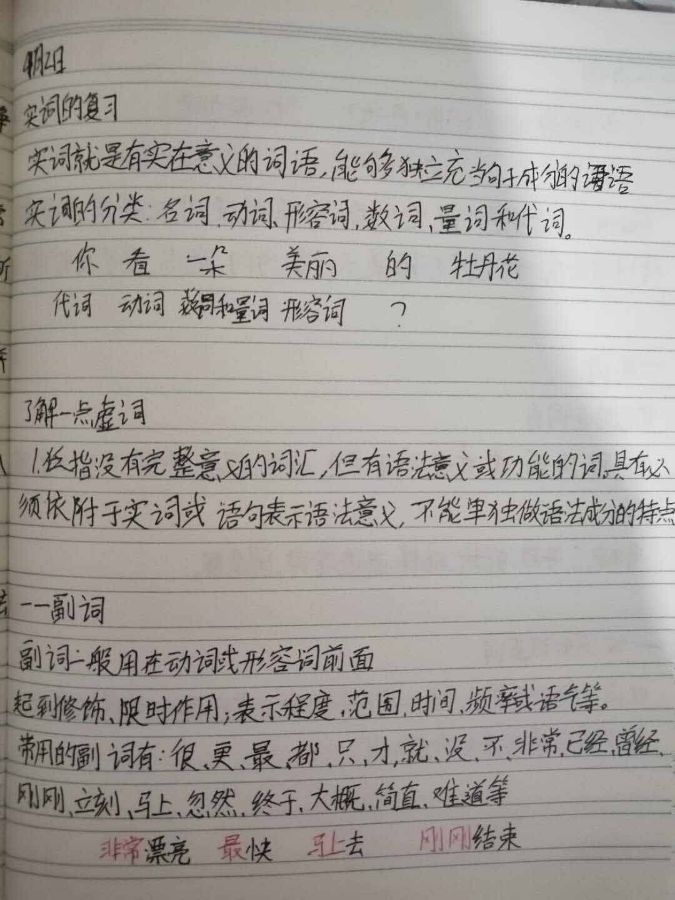 4月2日
实词的复习
实词就是有实在意义的词语,能够独立充当句子成分的词语
实词的分类:名词、动词、形容词,数词、量词和代词。
你 看 一朵 美丽 的 牡丹花
代词 动词 数词和量词 形容词 ?
了解一点虚词
1.仅指没有完整意义的词汇,但有语法意义或功能的词,具有必
须依附于实词或语句表示语法意义,不能单独做语法成分的特点
——副词
副词一般用在动词或形容词前面
起到修饰、限时作用;表示程度、范围、时间、频率或语气等。
常用的副词有:很、更、最、都、只、才、就、没、不、非常、已经、曾经、
刚刚、立刻、马上、忽然、终于、大概、简直、难道等
非常漂亮 最快 马上去 刚刚结束